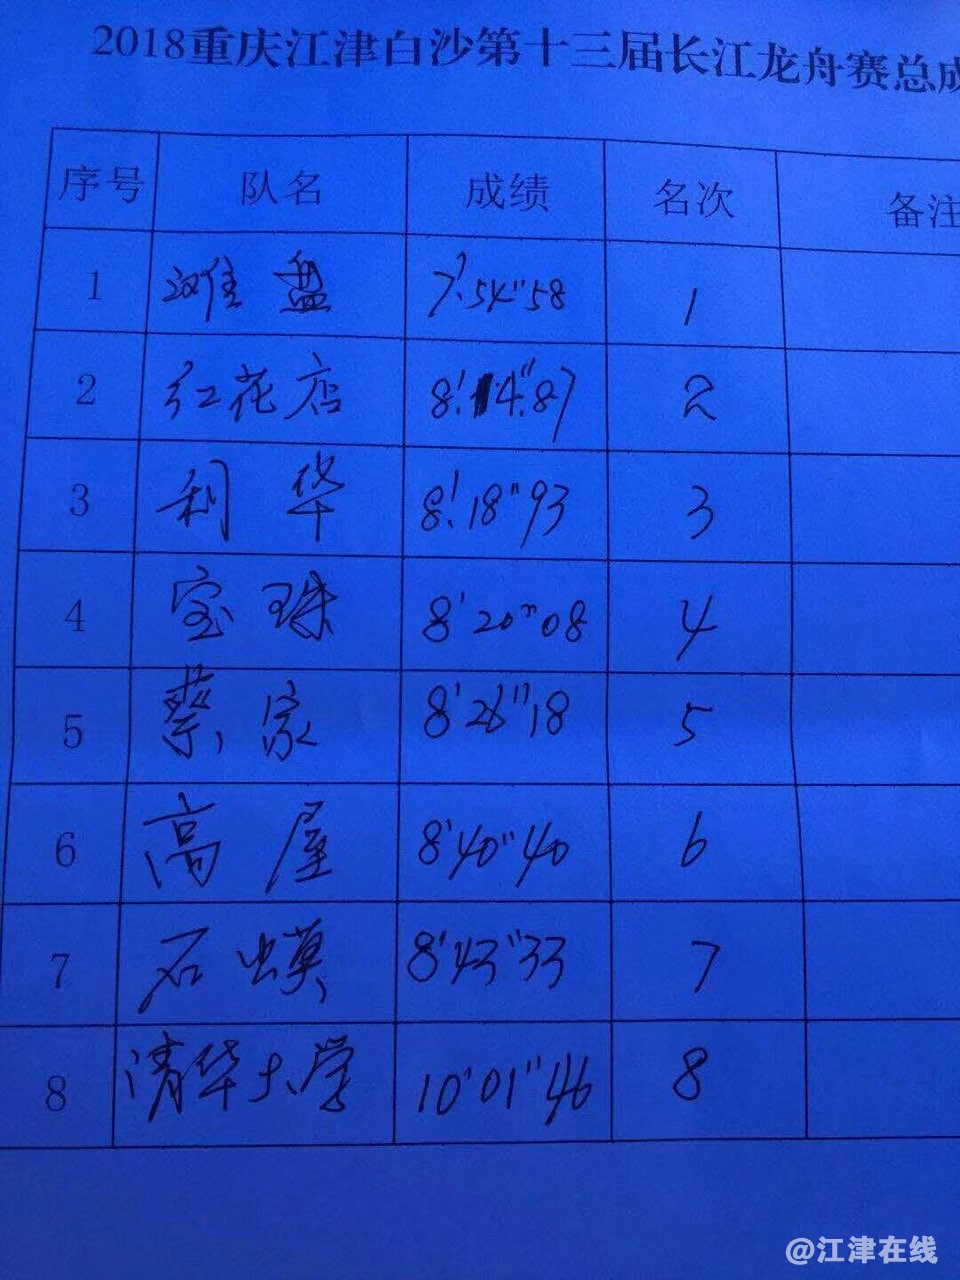 2018重庆江津白沙第十三届长江龙舟赛总成
序号 队名 成绩 名次 备注
1 滩盘 7'54"58 1
2 红花店 8'14"87 2
3 利华 8'18"93 3
4 宝珠 8'20"08 4
5 蔡家 8'26"18 5
6 高屋 8'40"40 6
7 石蟆 8'43"33 7
8 清华大学 10'01"46 8
@江津在线